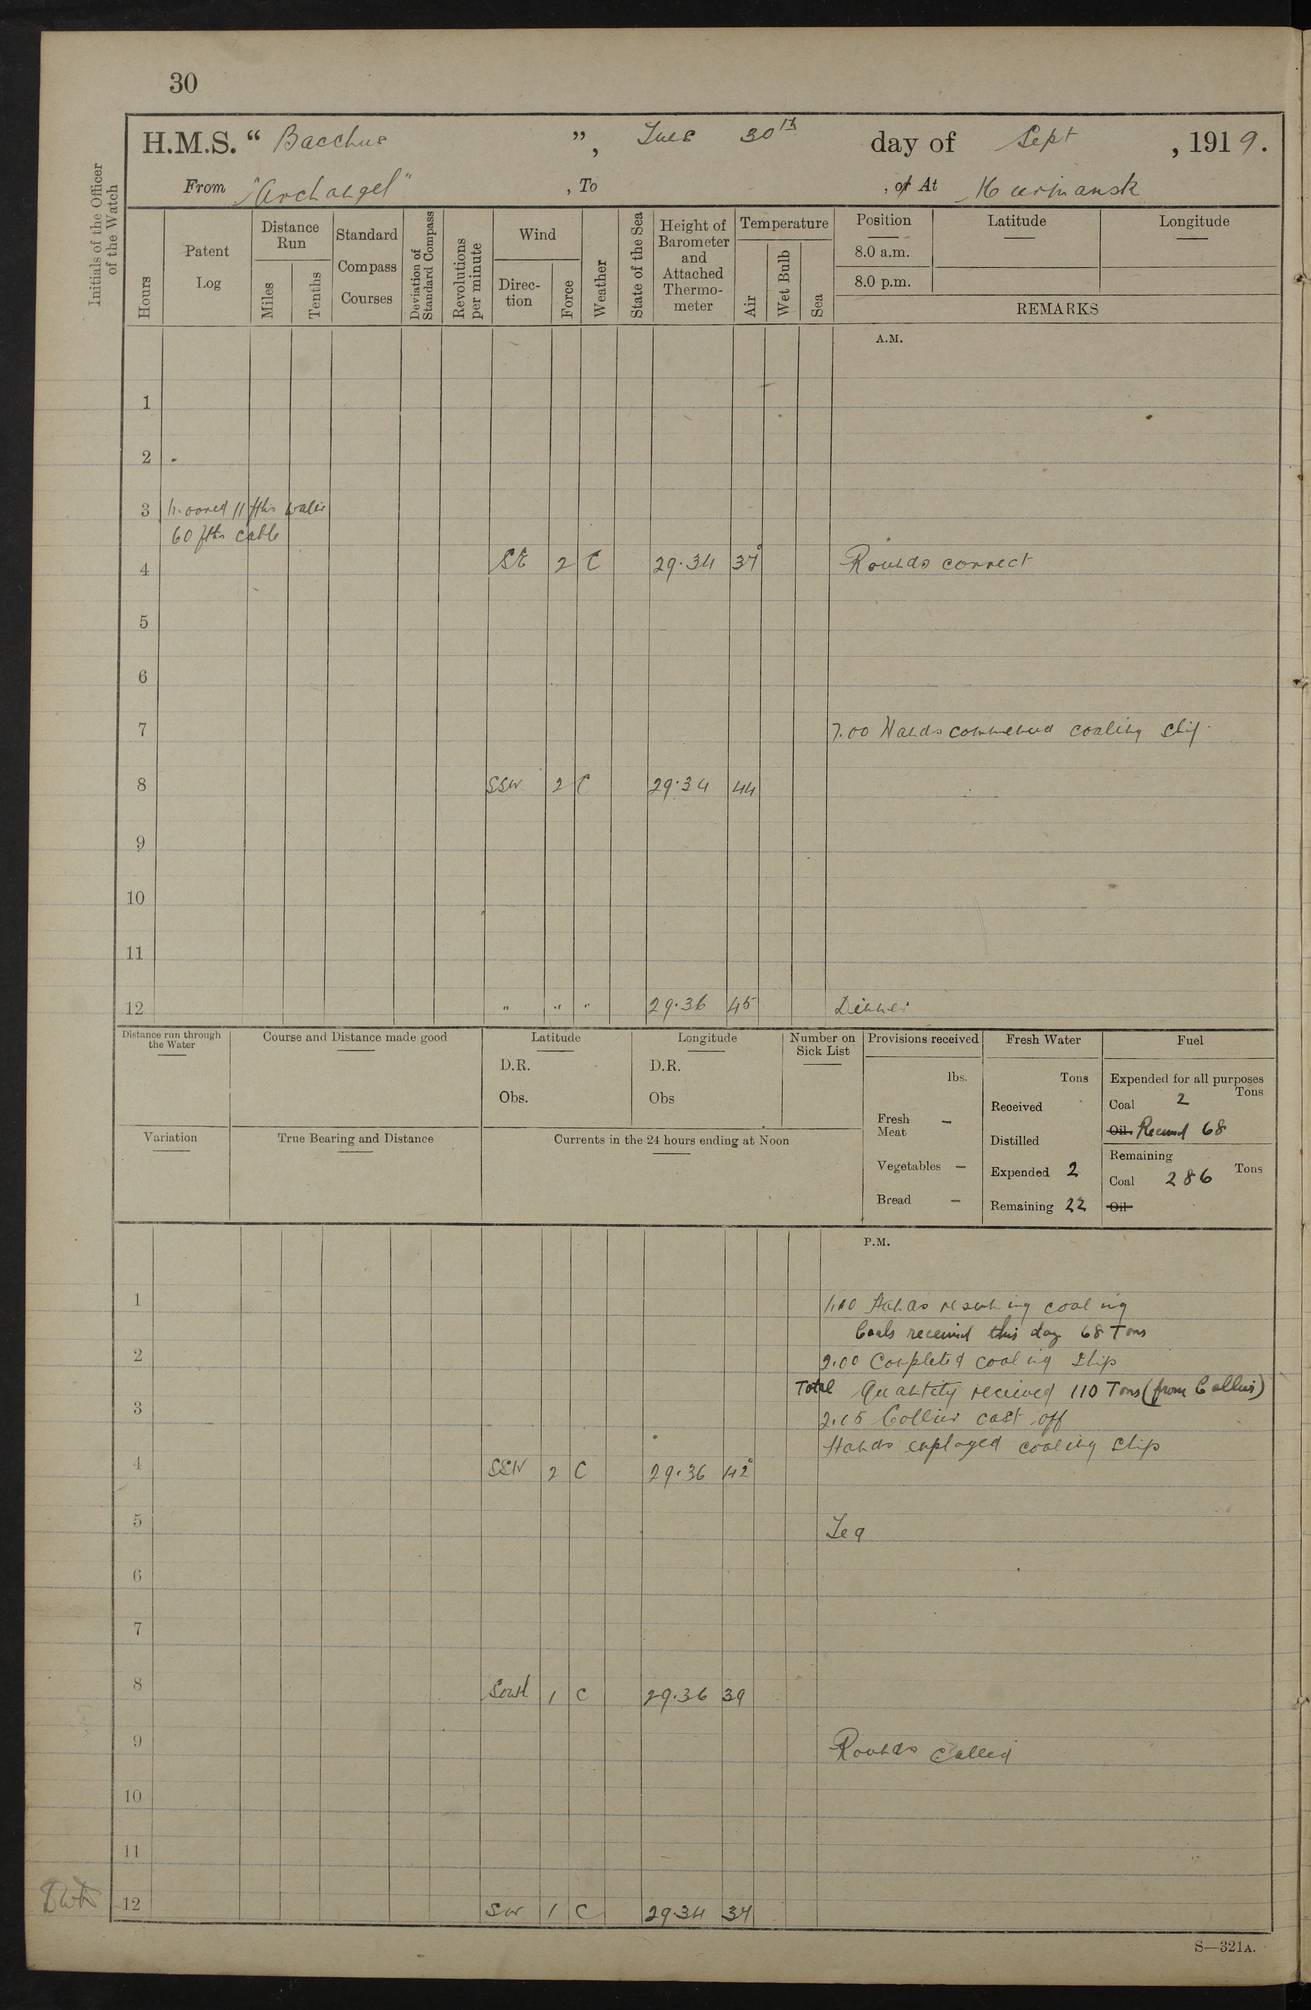 30
H.M.S. “ Bacchus ”, Tues 30th day of Sept , 1919.
From "Archangel" , To , or At Murmansk
Initials of the Officer of the Watch
Hours
Patent Log
Distance Run
Miles
Tenths
Standard Compass Courses
Deviation of Standard Compass
Revolutions per minute
Wind
Direc- tion
Force
Weather
State of the Sea
Height of Barometer and Attached Thermo- meter
Temperature
Air
Wet Bulb
Sea
Position Latitude Longitude
8.0 a.m.
8.0 p.m.
REMARKS
A.M.
1
2
3 Moored 11 fths water
60 fths cable
4 SE 2 C 29.34 37° Rounds correct
5
6
7 7.00 Hands commenced coaling ship.
8 SSW 2 C 29.34 44
9
10
11
12 " " " 29.36 45 Dinner
Distance run through the Water
Course and Distance made good
Latitude
D.R.
Obs.
Longitude
D.R.
Obs
Number on Sick List
Provisions received
lbs.
Fresh Meat –
Vegetables –
Bread –
Fresh Water
Tons
Received
Distilled
Expended 2
Remaining 22
Fuel
Expended for all purposes
Tons
Coal 2
Oil Received 68
Remaining
Tons
Coal 286
Oil
Variation
True Bearing and Distance
Currents in the 24 hours ending at Noon
P.M.
1 1.00 Hands resuming coaling
Coals received this day 68 Tons
2 2.00 Completed coaling ship
Total Quantity received 110 Tons (from Collier)
3 2.15 Collier cast off
Hands employed coaling ship
4 SSW 2 C 29.36 42°
5 Tea
6
7
8 South 1 C 29.36 39
9 Rounds Called
10
11
12 SW 1 C 29.34 37
S—321A.